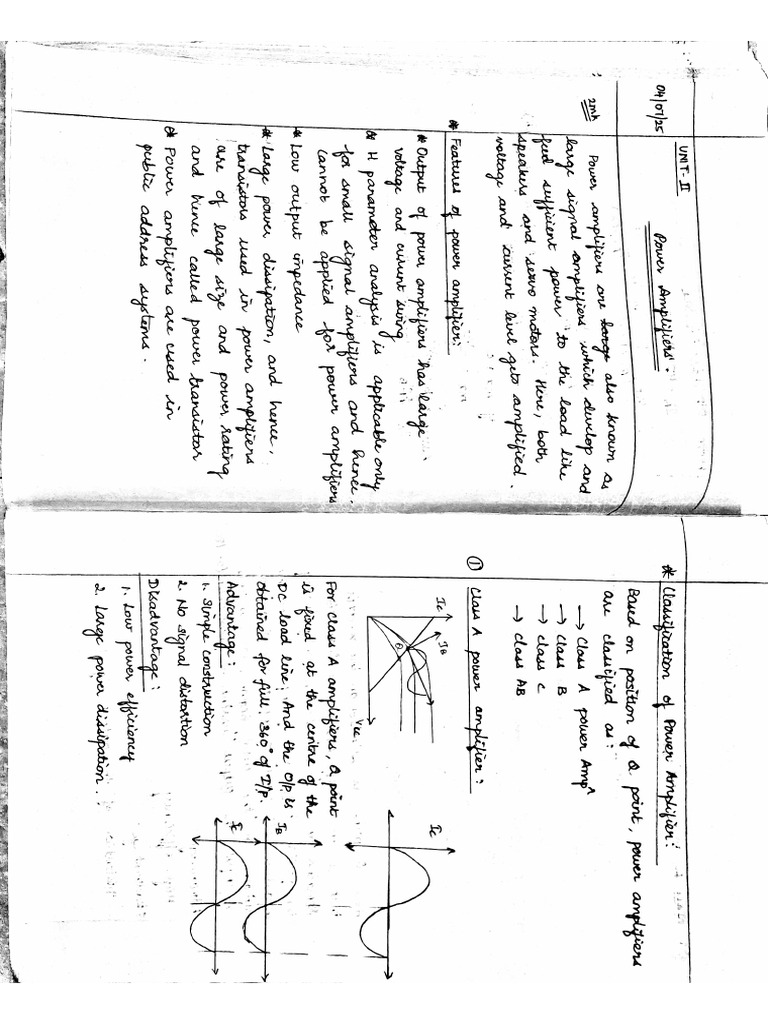 04/07/25
UNIT-II
Power Amplifiers.
2mk
Power amplifiers are large also known as
large signal amplifiers which develop and
fed sufficient power to the load like
speakers and servo motors. Here, both
voltage and current level gets amplified.
* Features of power amplifier:
* Output of power amplifiers has large
voltage and current swing
* H parameter analysis is applicable only
for small signal amplifiers and hence
cannot be applied for power amplifiers
* Low output impedance
* Large power dissipation, and hence,
transistors used in power amplifiers
are of large size and power rating
and hence called power transistor
* Power amplifiers are used in
public address systems.
* Classification of Power Amplifier:
Based on position of Q point, power amplifiers
are classified as:
→ Class A power Ampr
→ Class B
→ Class C
→ Class AB
① Class A power amplifier:
Ic
IB
Q
Vcc
Ic
For class A amplifiers, Q point
is fixed at the centre of the
DC load line. And the O/P is
obtained for full 360° of I/P.
IB
Advantage:
1. Simple construction
2. No signal distortion
Disadvantage:
1. Low power efficiency
2. Large power dissipation.